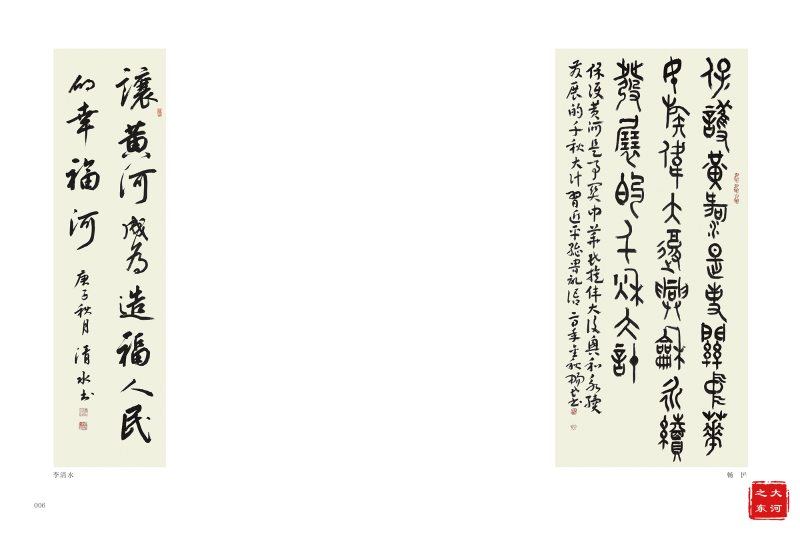 讓黄河成为造福人民
的幸福河
庚子秋月 清水书
李清水
006
保護黃河是事關中華
民族偉大復興龢永續
發展的千秋大計
保護黄河是事関中華民族偉大復興和永續
发展的千秋大计習近平總書記語
杨
大河
之东